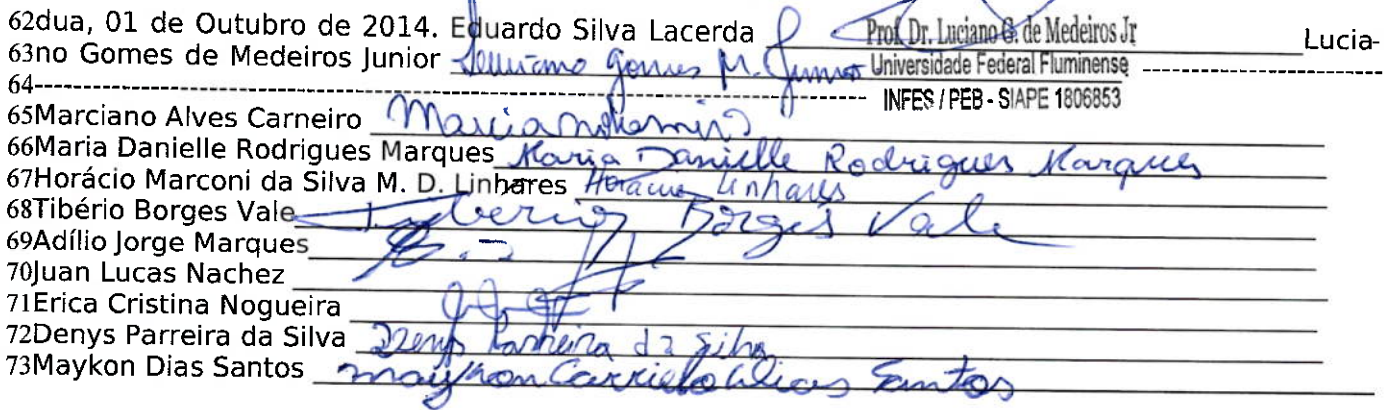 62dua, 01 de Outubro de 2014. Eduardo Silva Lacerda Prof. Dr. Luciano G. de Medeiros Jr Lucia-
63no Gomes de Medeiros Junior Luciano Gomes M. Junior Universidade Federal Fluminense
64 INFES / PEB - SIAPE 1806853
65Marciano Alves Carneiro
66Maria Danielle Rodrigues Marques Maria Danielle Rodrigues Marques
67Horácio Marconi da Silva M. D. Linhares Horacio Linhares
68Tibério Borges Vale Tiberio Borges Vale
69Adílio Jorge Marques
70Juan Lucas Nachez
71Erica Cristina Nogueira
72Denys Parreira da Silva Denys Parreira da Silva
73Maykon Dias Santos Maykon Carrielo Dias Santos